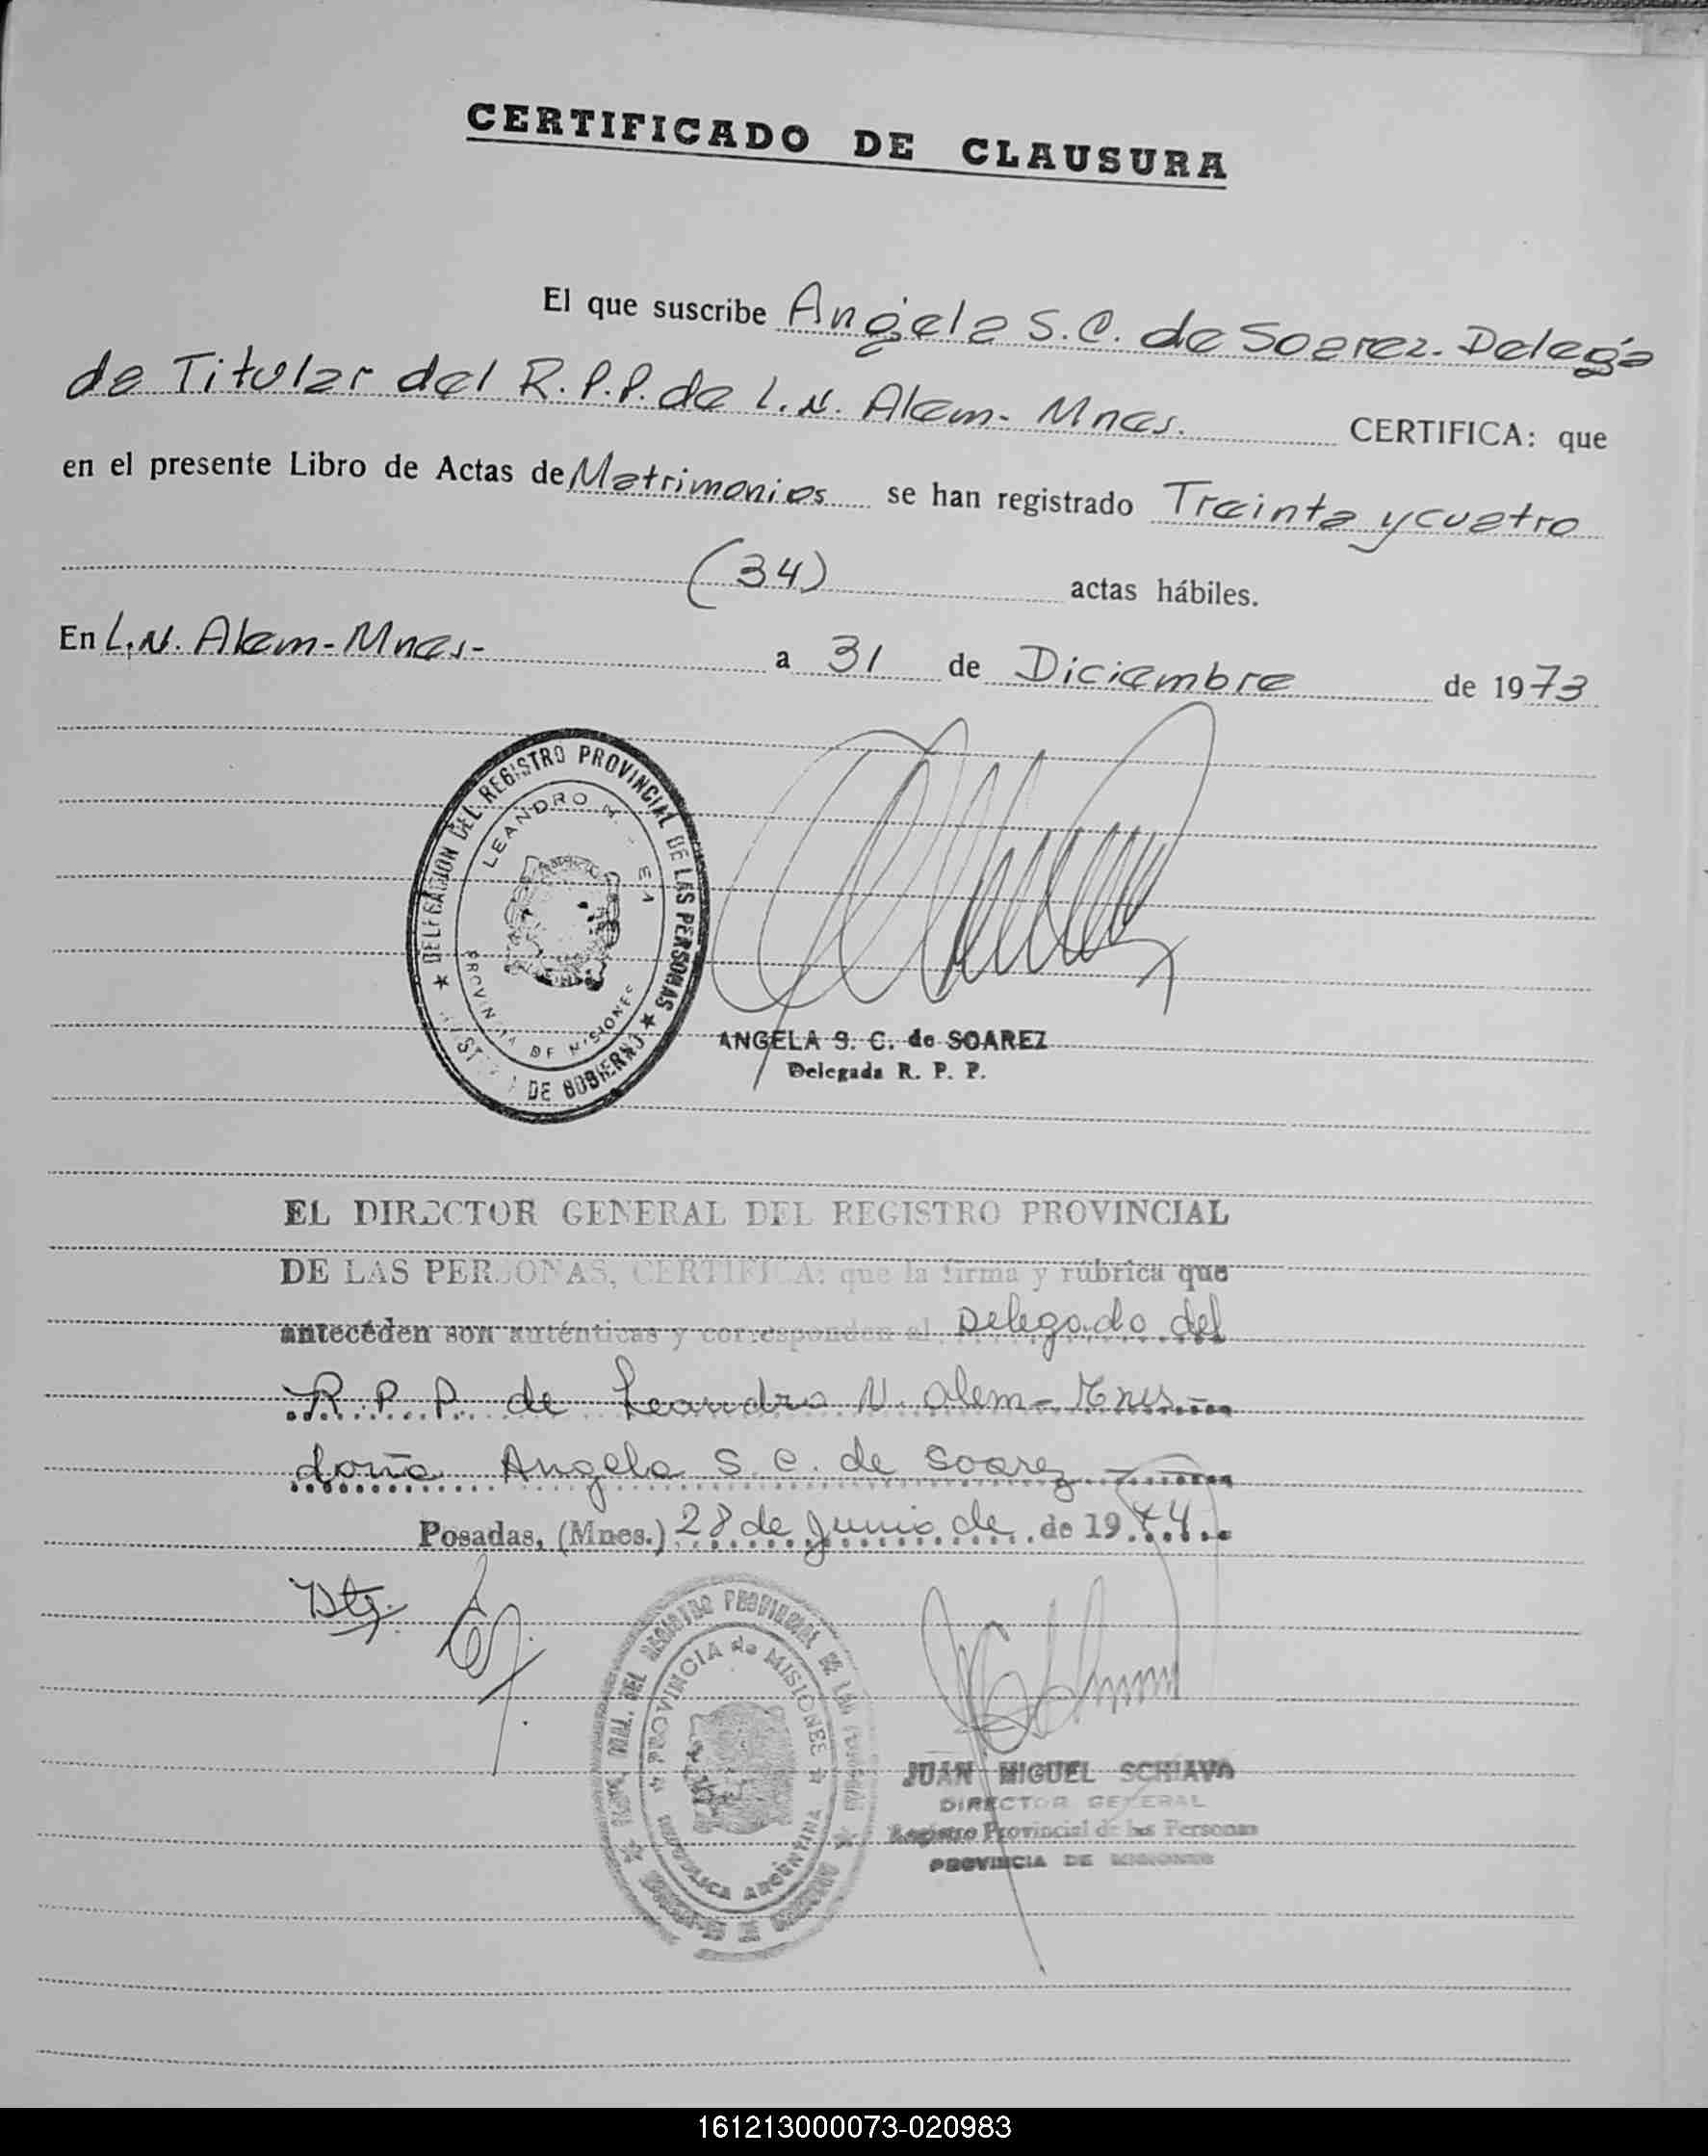 CERTIFICADO DE CLAUSURA
El que suscribe Angela S.C. de Soarez - Delega
da Titular del R.P.P. de L.N. Alem - Mnes. CERTIFICA: que
en el presente Libro de Actas de Matrimonios se han registrado Treinta y cuatro
(34) actas hábiles.
En L.N. Alem - Mnes - a 31 de Diciembre de 1973
DELEGACION DEL REGISTRO PROVINCIAL DE LAS PERSONAS
LEANDRO N.
PROVINCIA DE MISIONES
DE GOBIERNO
ANGELA S. C. de SOAREZ
Delegada R. P. P.
EL DIRECTOR GENERAL DEL REGISTRO PROVINCIAL
DE LAS PERSONAS, CERTIFICA: que la firma y rúbrica que
anteceden son auténticas y corresponden al Delegado del
R.P.P. de Leandro N. Alem - Mnes -
doña Angela S.C. de Soarez
Posadas, (Mnes.) 28 de Junio de de 1974
DEL REGISTRO PROVINCIAL DE LAS
PROVINCIA de MISIONES
REPUBLICA ARGENTINA
JUAN MIGUEL SCHIAVO
DIRECTOR GENERAL
Registro Provincial de las Personas
PROVINCIA DE MISIONES
161213000073-020983